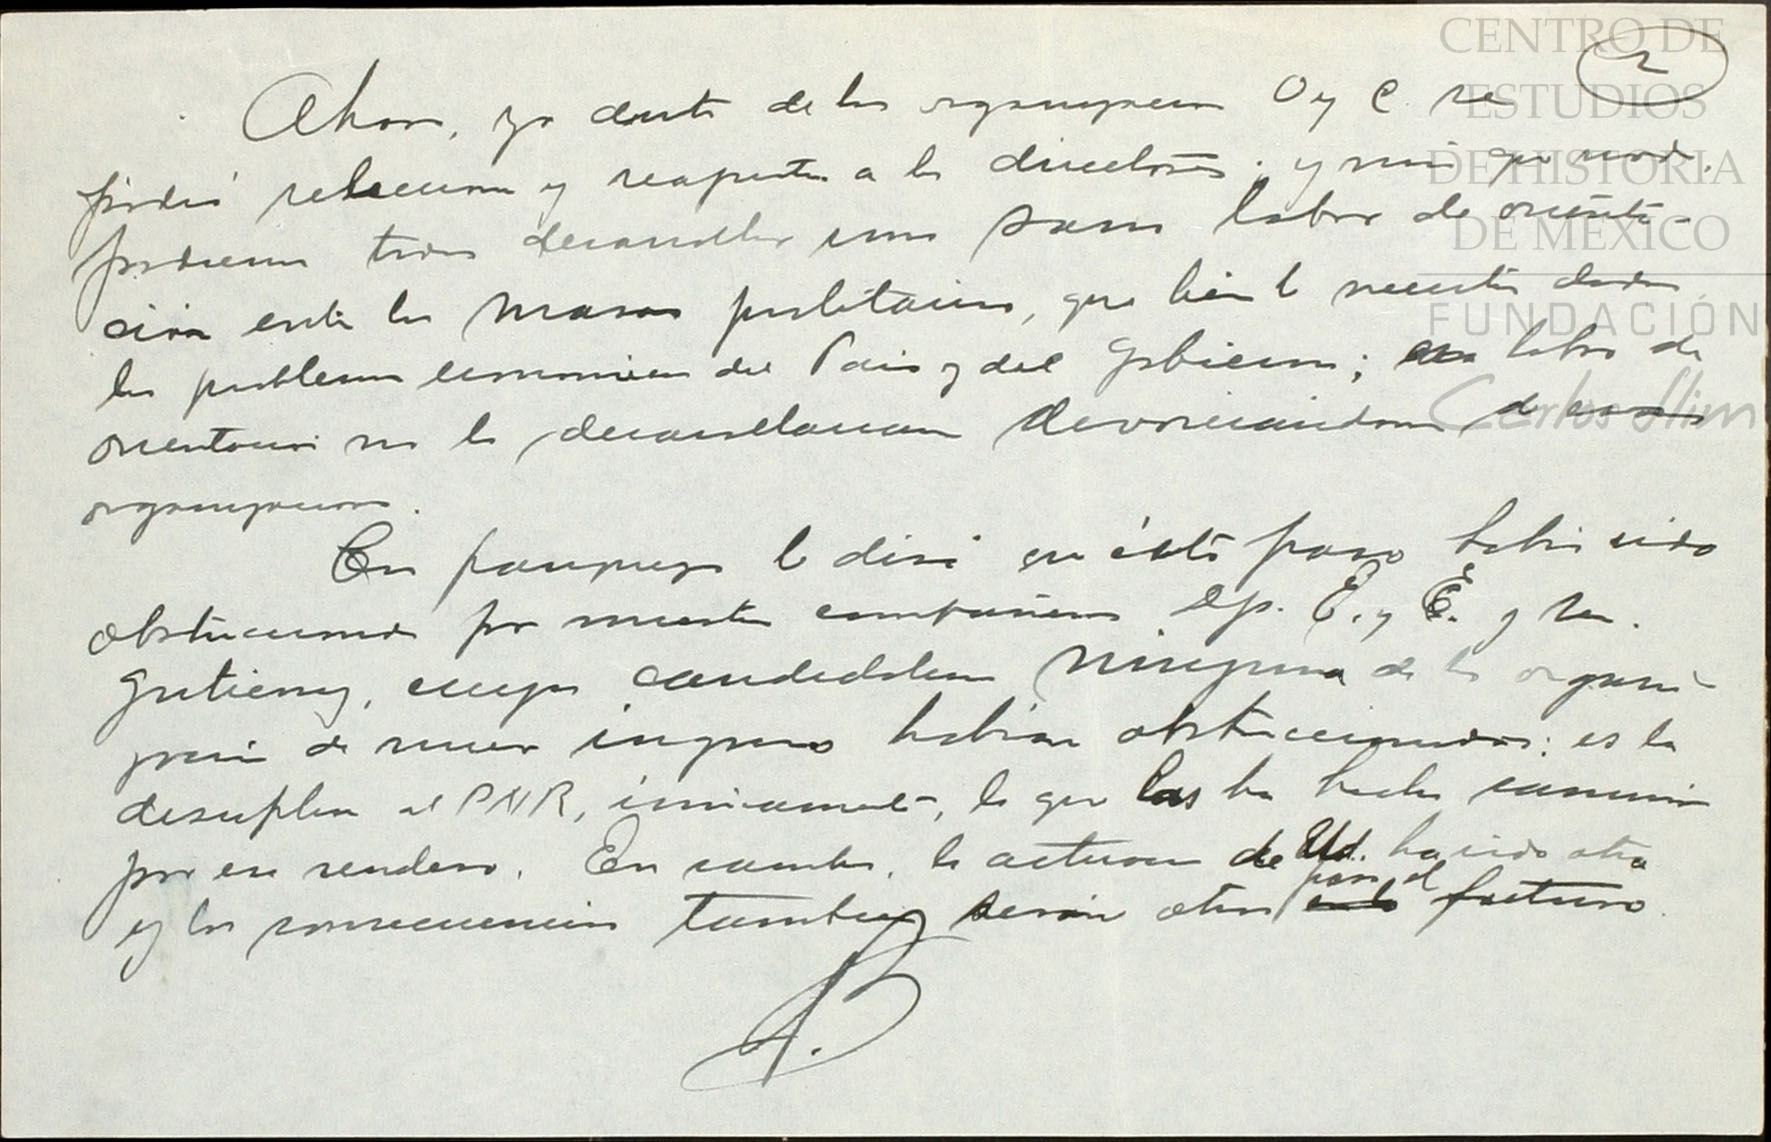 CENTRO DE
ESTUDIOS
DE HISTORIA
DE MÉXICO
FUNDACIÓN
Carlos Slim
2
Ahora, ya dentro de las organizaciones O y C. se
podrá seleccionar y respetar a los directores; y
podremos todos desarrollar una sana labor de orienta-
ción entre las masas proletarias, que bien lo necesitan dados
los problemas económicos del País y del Gobierno; esa labor de
orientación no la desarrollaríamos divorciándonos de esas
organizaciones.
En parangón le diré que éste paso había sido
obstruccionado por nuestros compañeros Lps. E. y E. y
Gutierrez, cuyas candidaturas ninguna de las organi-
zaciones de nuevo ingreso habían obstruccionado: es la
disciplina al PNR, únicamente, la que las ha hecho caminar
por ese sendero. En cambio, la actuación de Ud. ha sido otra
y las consecuencias también serán otras para el futuro.